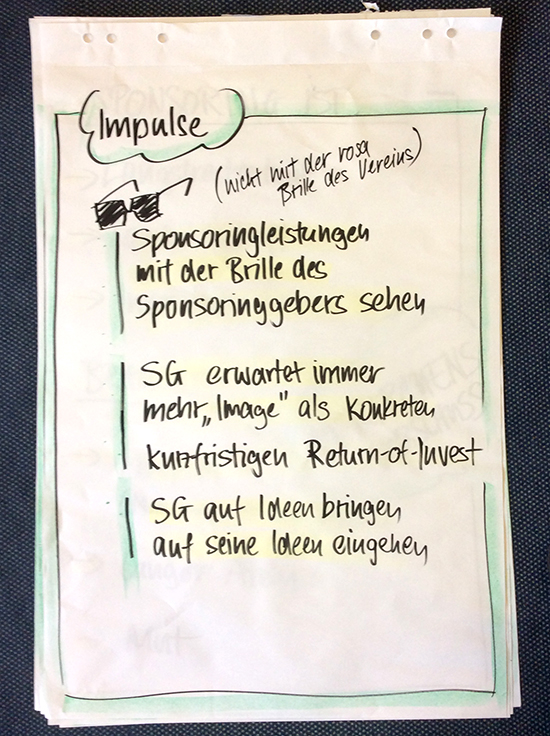 Impulse
(nicht mit der rosa
Brille des Vereins)
Sponsoringleistungen
mit der Brille des
Sponsoringgebers sehen
SG erwartet immer
mehr „Image" als konkreten
kurzfristigen Return-of-Invest
SG auf Ideen bringen
auf seine Ideen eingehen